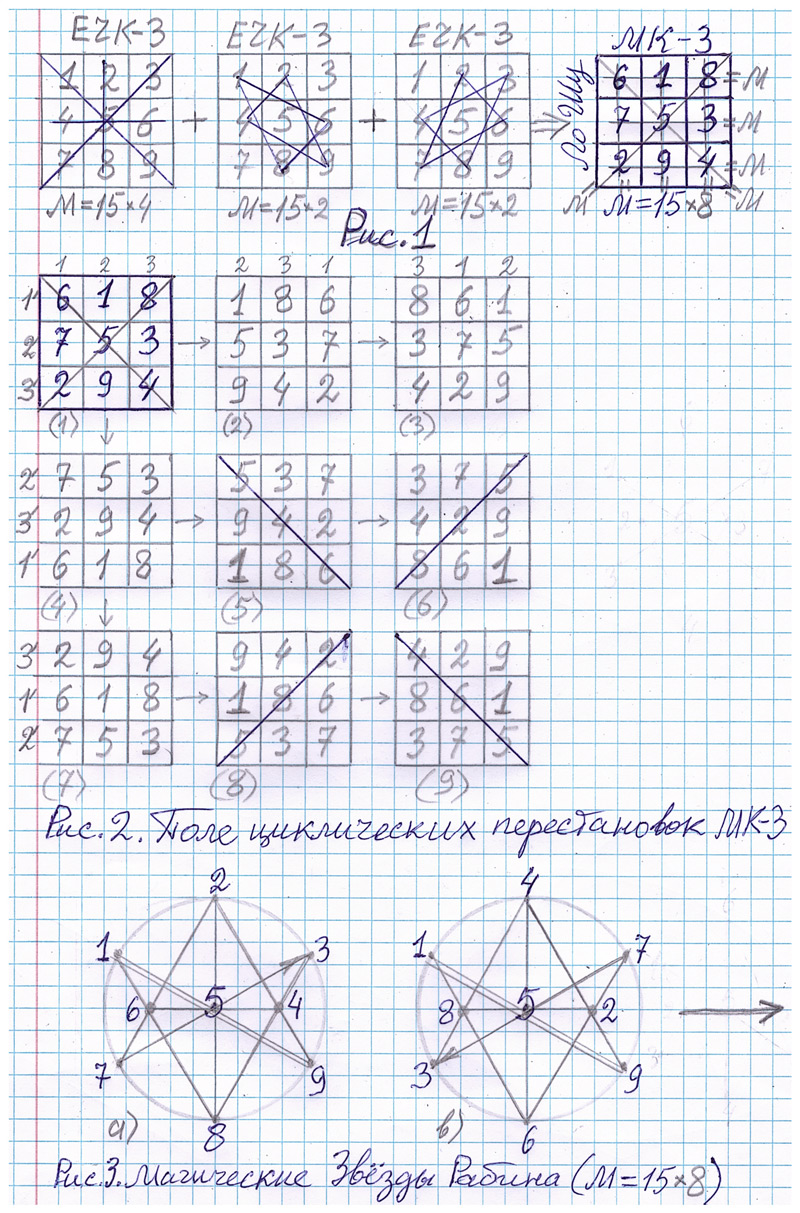 ЕЧК-3 ЕЧК-3 ЕЧК-3 МК-3
1 2 3 1 2 3 1 2 3 6 1 8 = М
4 5 6 + 4 5 6 + 4 5 6 ⇒ По Шу 7 5 3 = М
7 8 9 7 8 9 7 8 9 2 9 4 = М
М=15×4 М=15×2 М=15×2 М М=15×8 М
Рис. 1
1 2 3 2 3 1 3 1 2
1 6 1 8 1 8 6 8 6 1
2 7 5 3 → 5 3 7 → 3 7 5
3 2 9 4 9 4 2 4 2 9
(1) ↓ (2) (3)
2 7 5 3 5 3 7 3 7 5
3 2 9 4 → 9 4 2 → 4 2 9
1 6 1 8 1 8 6 8 6 1
(4) ↓ (5) (6)
3 2 9 4 9 4 2 4 2 9
1 6 1 8 → 1 8 6 → 8 6 1
2 7 5 3 5 3 7 3 7 5
(7) (8) (9)
Рис. 2. Поле циклических перестановок МК-3
2 4
1 3 1 7
6 5 4 8 5 2 →
7 9 3 9
а) 8 в) 6
Рис.3. Магические Звёзды Рабина (М=15×8)